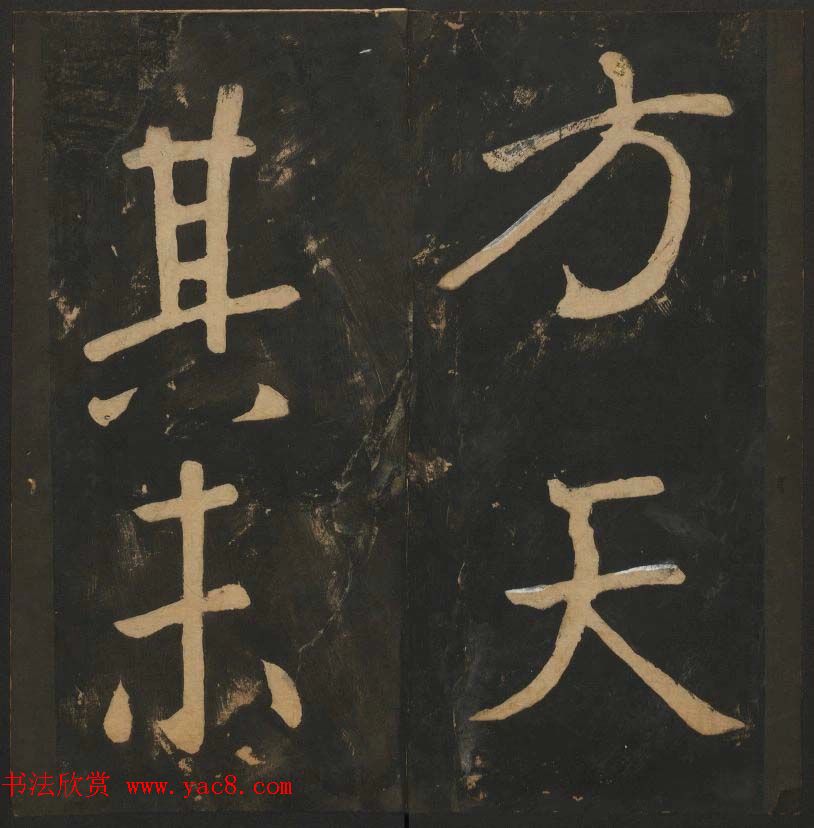 方天
其未
书法欣赏 www.yac8.com